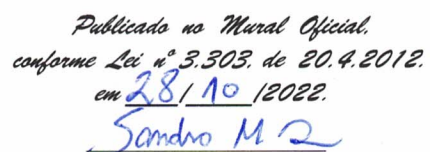 Publicado no Mural Oficial,
conforme Lei nº 3.303, de 20.4.2012.
em 28/10/2022.
Sandro M